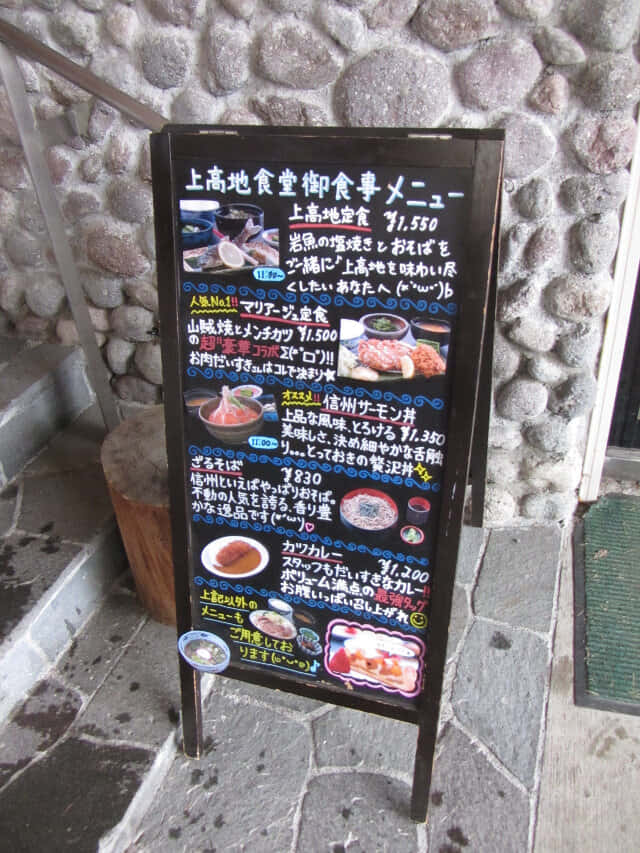 上高地食堂御食事メニュー
上高地定食 ¥1,550
岩魚の塩焼きとおそばを
ご一緒に♪上高地を味わい尽
くしたいあなたへ(*°ω°)b
11:00~
人気No.1!!
マリアージュ定食
山賊焼とメンチカツ ¥1,500
の超"豪華コラボΣ(°ロ°)!!
お肉だいすきさんはコレで決まり★
オススメ!! 信州サーモン丼
上品な風味、とろける ¥1,350
美味しさ、決め細やかな舌触
り...とっておきの贅沢丼
11:00~
ざるそば ¥830
信州といえばやっぱりおそば。
不動の人気を誇る、香り豊
かな逸品です(*°ω°)♡
カツカレー ¥1,200
スタッフもだいすきなカレー!!
ボリューム満点の最強タッグ
お腹いっぱい召し上がれ☺
上記以外の
メニューも
ご用意してお
ります(๑°ᴗ°๑)♪